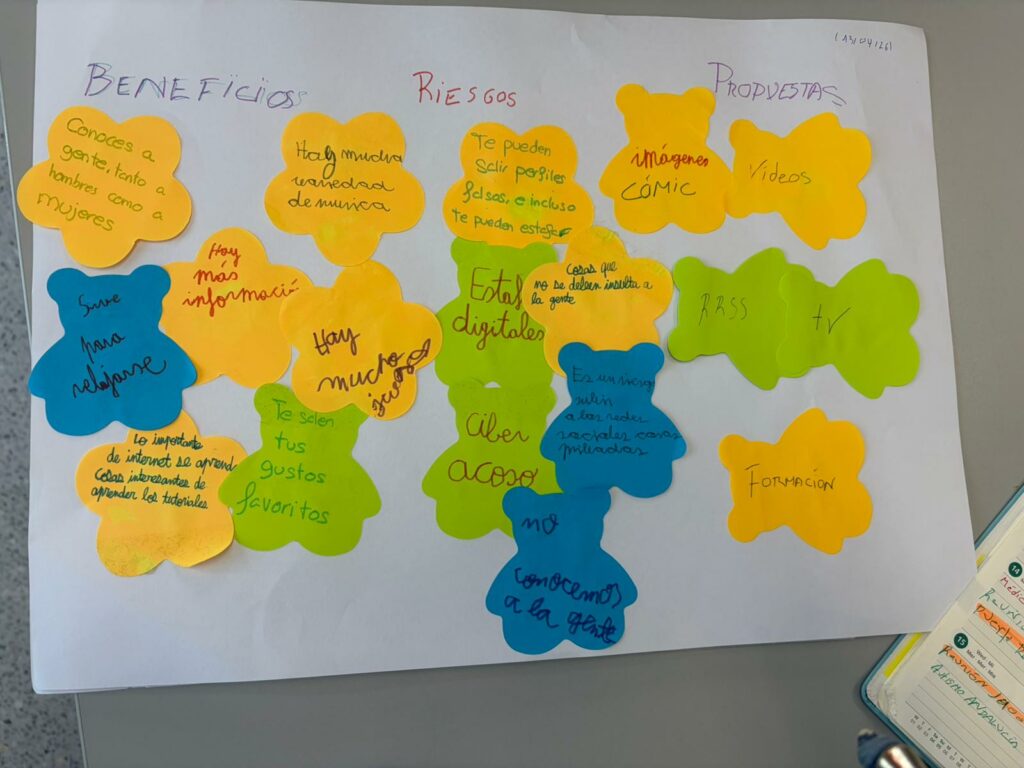 (13/04/26)
BENEFICIOS
RIESGOS
PROPUESTAS
Conoces a
gente, tanto a
hombres como a
mujeres
Hay mucha
variedad
de musica
Sirve
para
relajarse
Hay
mas
informació
Hay
mucho
juegos
Lo importante
de internet se aprend
Cosas interesantes de
aprender los tutoriales
Te salen
tus
gustos
favoritos
Te pueden
Salir perfiles
falsos, e incluso
te pueden estafar
Estaf
digitales
Cosas que
no se deben insulta a
la gente
Ciber
acoso
Es un riesgo
subir
a las redes
sociales cosas
privadas
no
conocemos
a la gente
imágenes
CÓMIC
Vídeos
RRSS
TV
FORMACIÓN
14
Médic
REUNI
PUERTO
15
Wed Mi.
Mer Mié
REUNIÓN
AUTISMO ANDALUCÍA